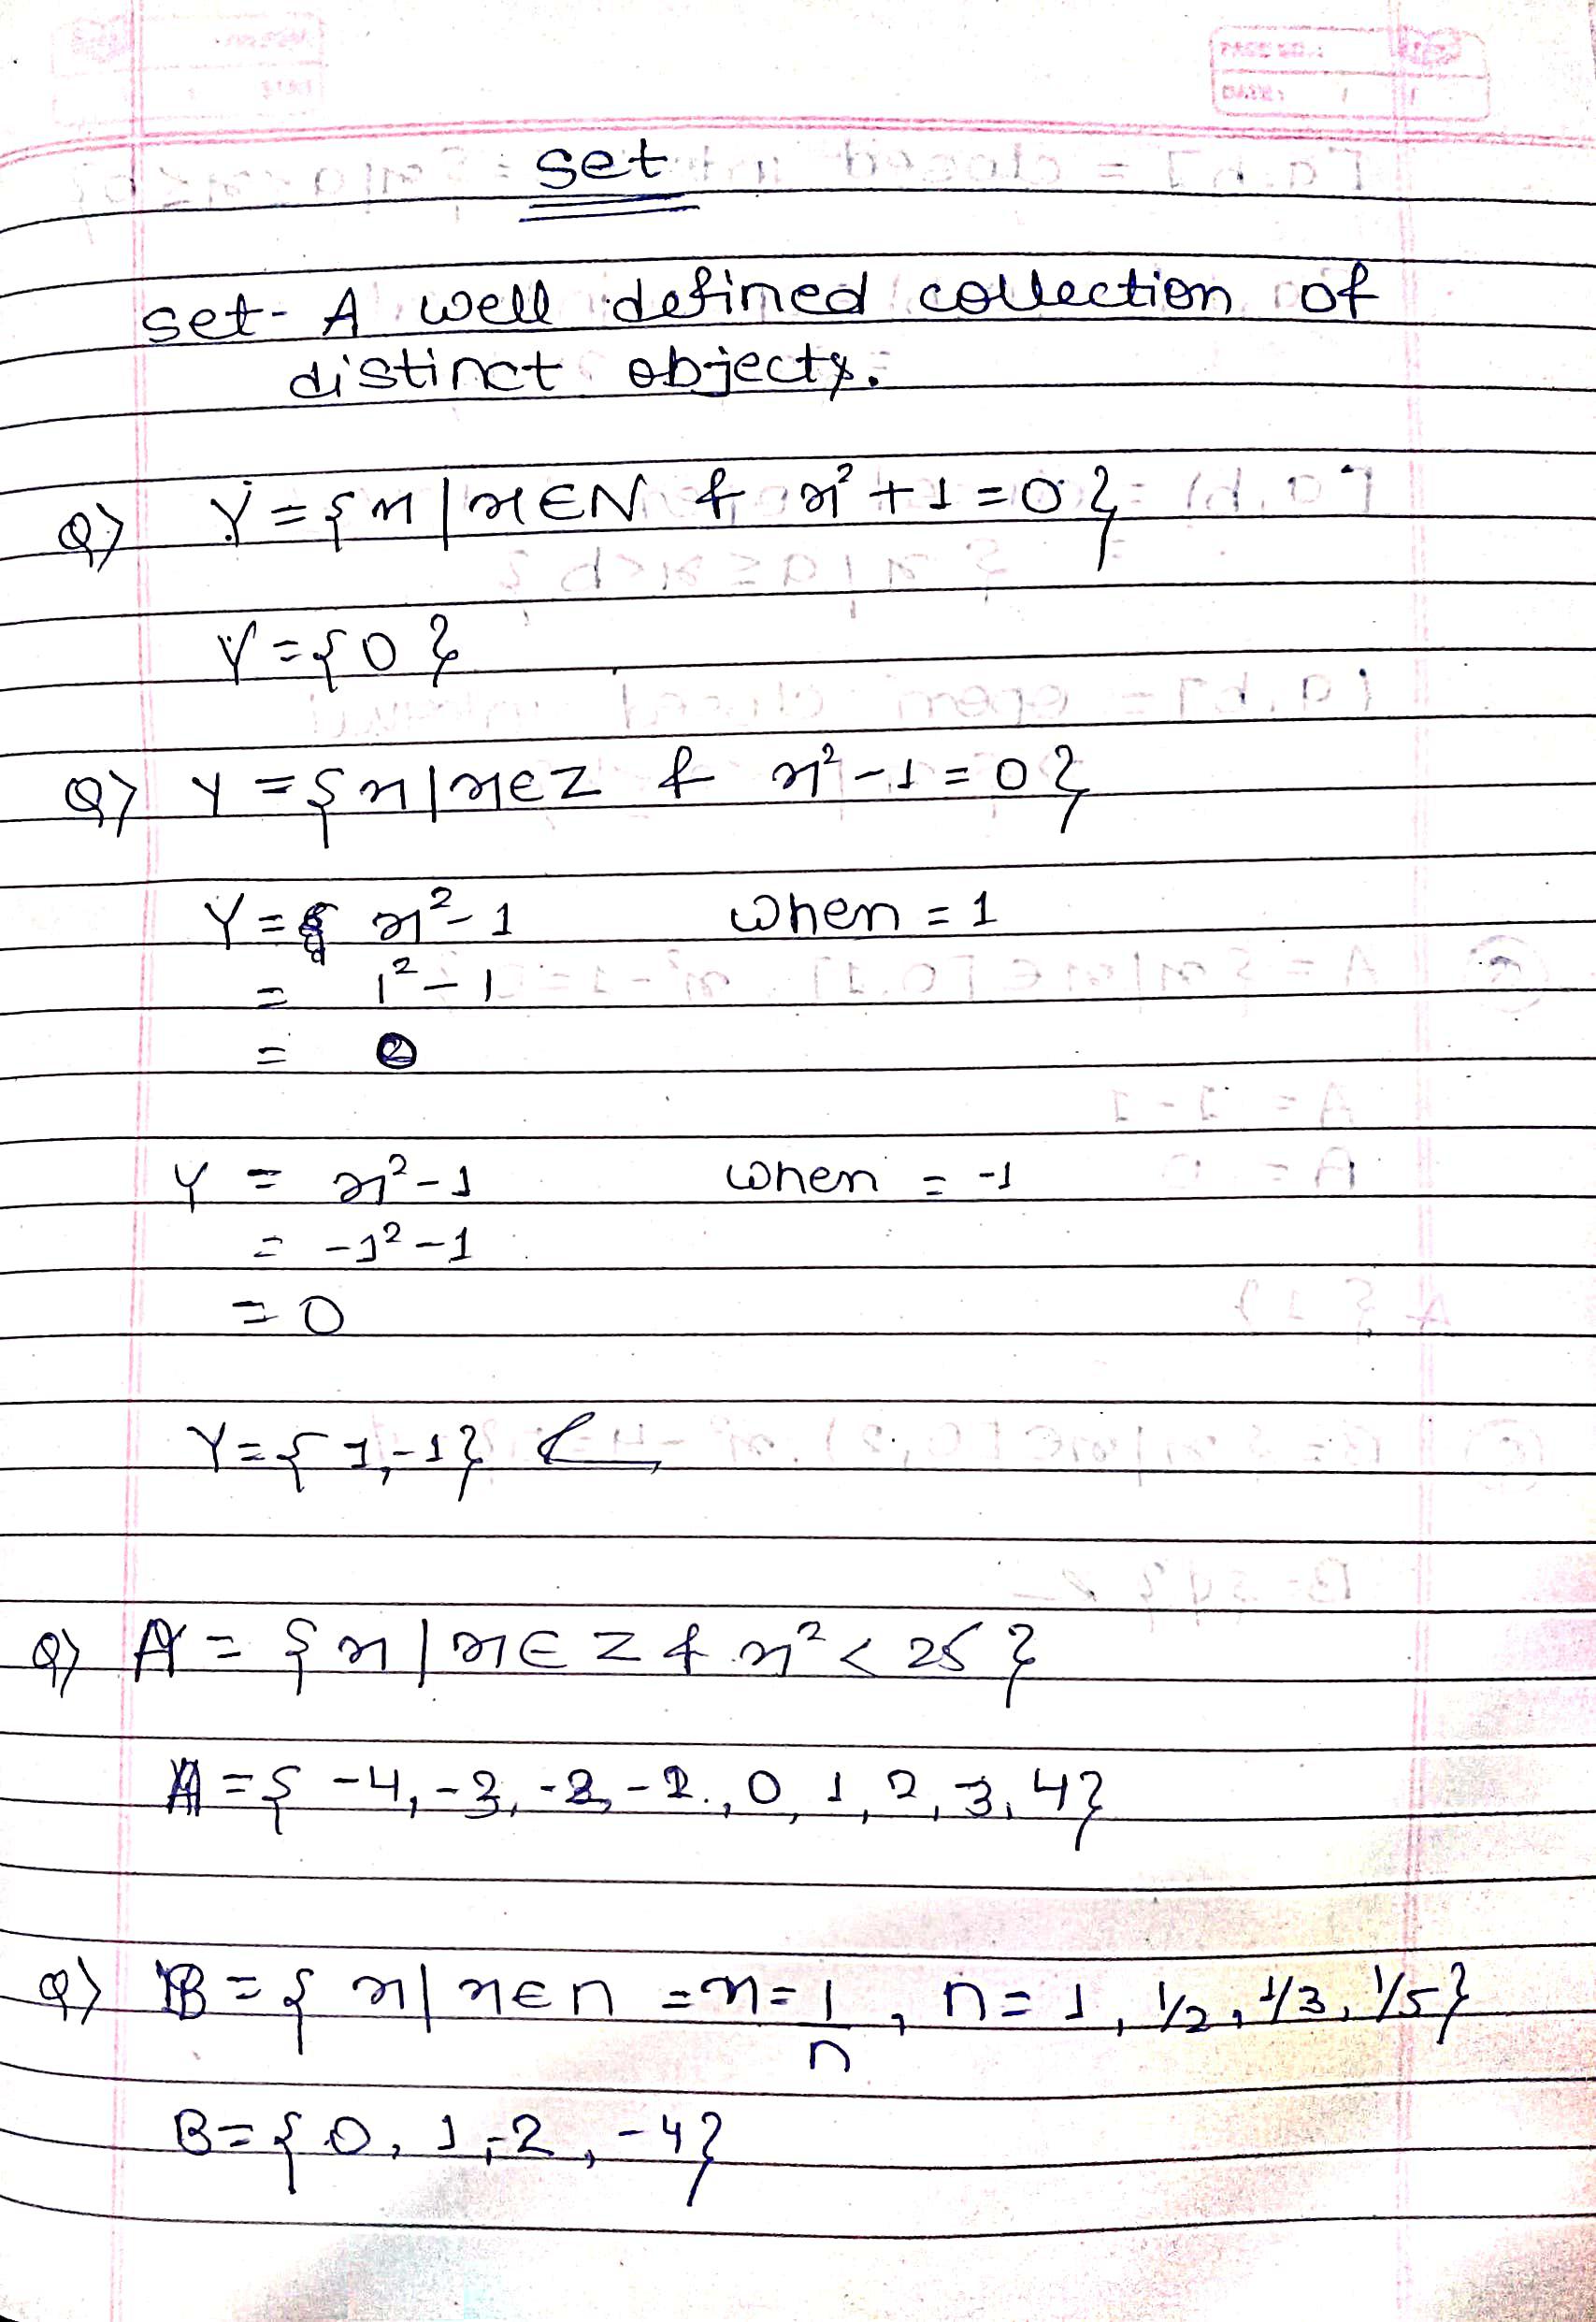 PAGE NO.:
DATE: / /
set
set- A well defined collection of
distinct objects.
Q) Y = {x | x ∈ N & x² + 1 = 0}
Y = {0}
Q) Y = {x | x ∈ Z & x² - 1 = 0}
Y = x² - 1 when = 1
= 1² - 1
=
Y = x² - 1 when = -1
= -1² - 1
= 0
Y = {1, -1}
Q) A = {x | x ∈ Z & x² < 25}
A = { -4, -3, -2, -2., 0, 1, 2, 3, 4}
Q) B = { x | x ∈ n = x = 1/n , n = 1, 1/2, 1/3, 1/5}
B = {0, 1, -2, -4}